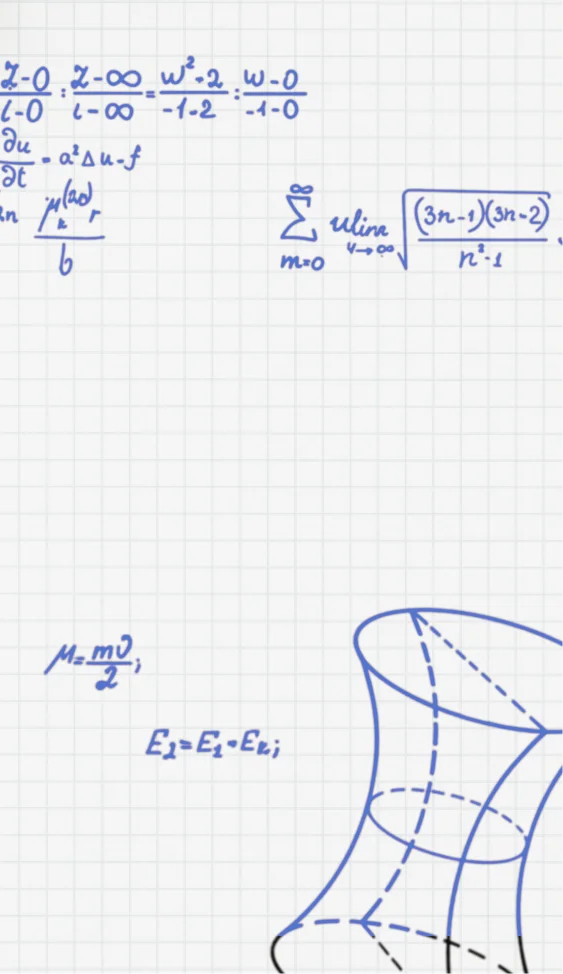 z-0/i-0 : z-∞/i-∞ = w²-2/-1-2 : w-0/-1-0
∂u/∂t = a²Δu-f
μₖ⁽²⁰⁾r/b
∑ m=0 ∞ lim √(3n-1)(3n-2)/n²-1
M=mv/2;
E₂=E₁-Eₖ;